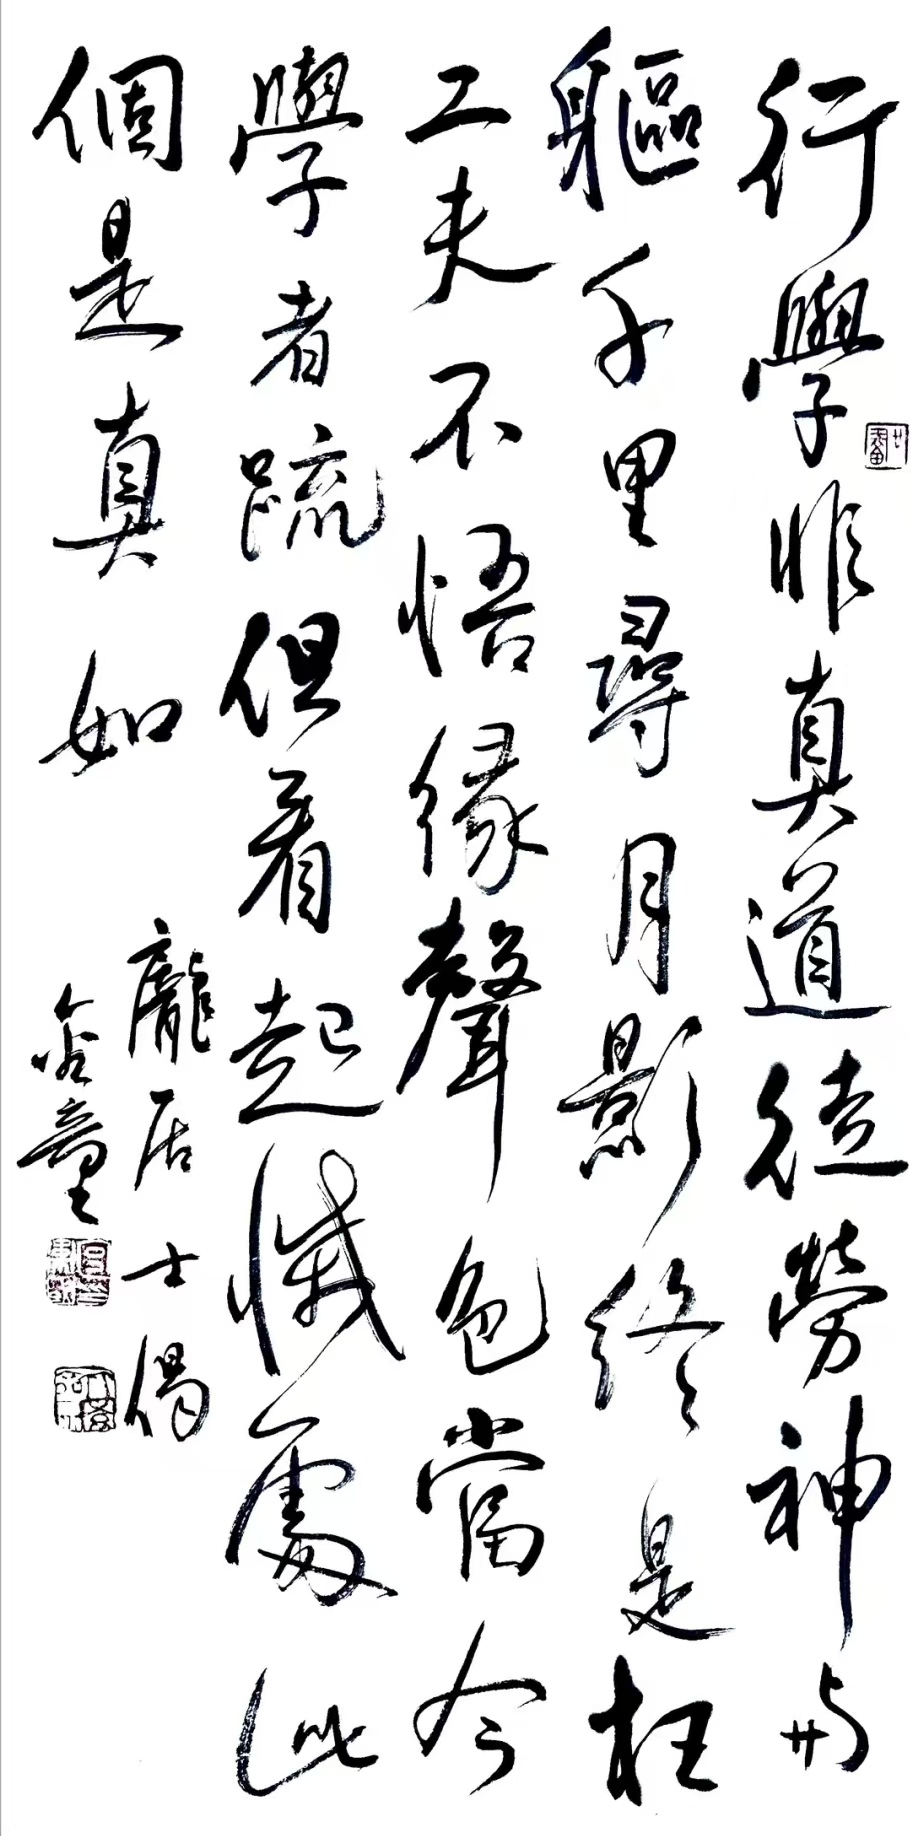 行學非真道徒勞神与
軀千里尋月影終是枉
工夫不悟緣聲色當今
學者疏但看起滅處此
個是真如
龐居士偈